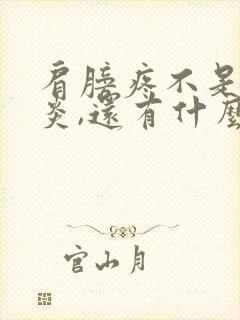 肩膀疼不是
炎,還有什麼
官山月